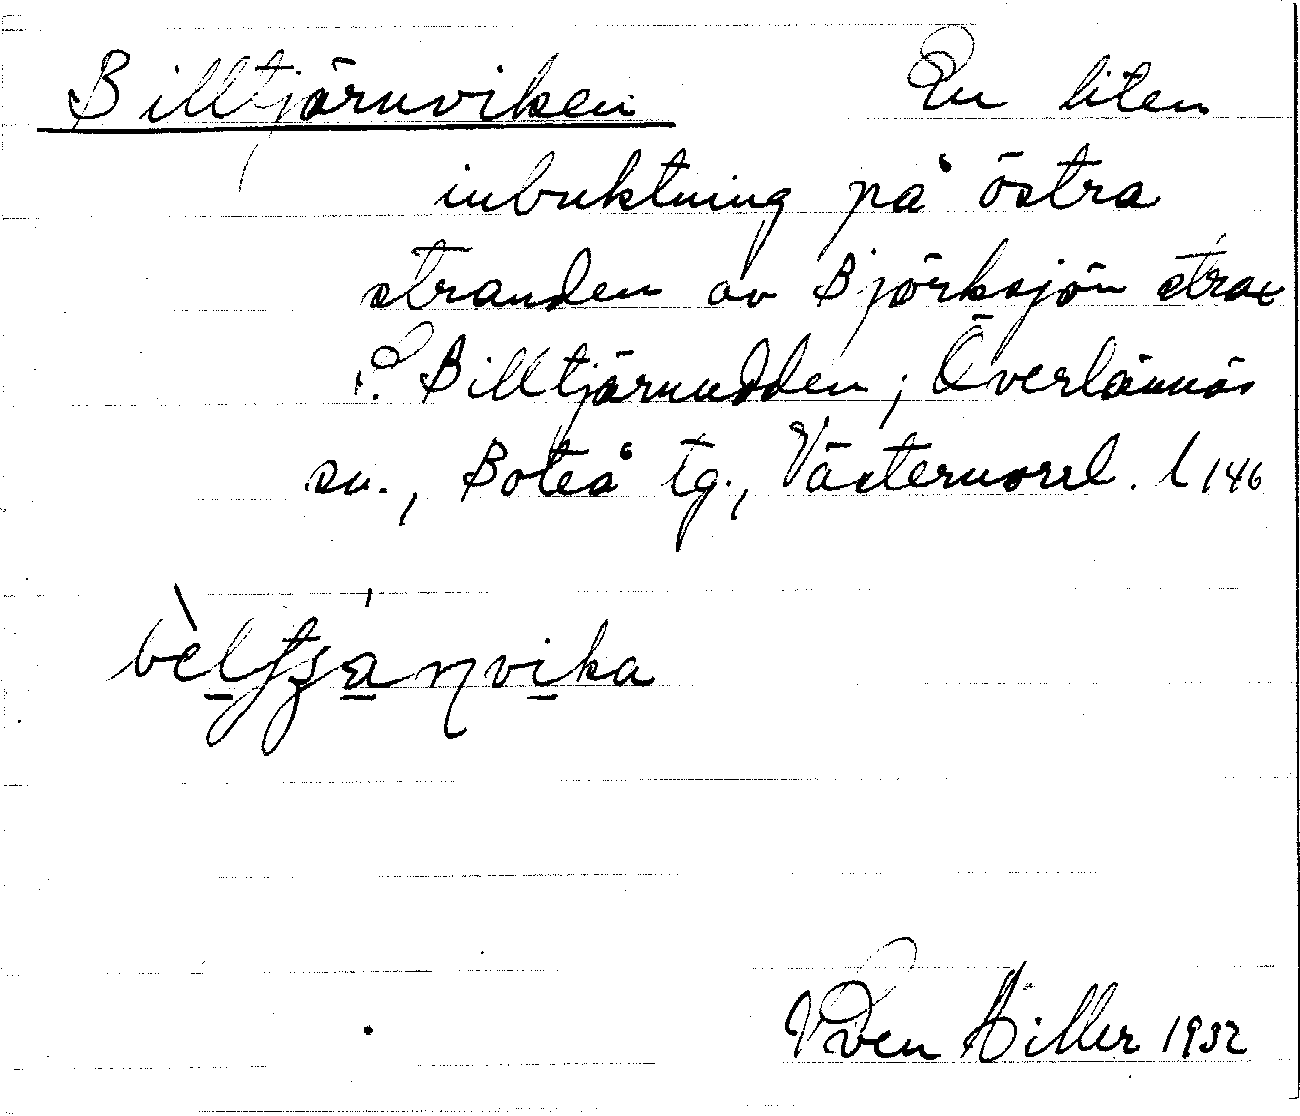 Billtjärnviken En liten
inbuktning på östra
stranden av Björksjön strax
S. Billtjärnudden; Överlännäs
sn., Boteå tg., Västernorrl. l 146
Sven Hiller 1932